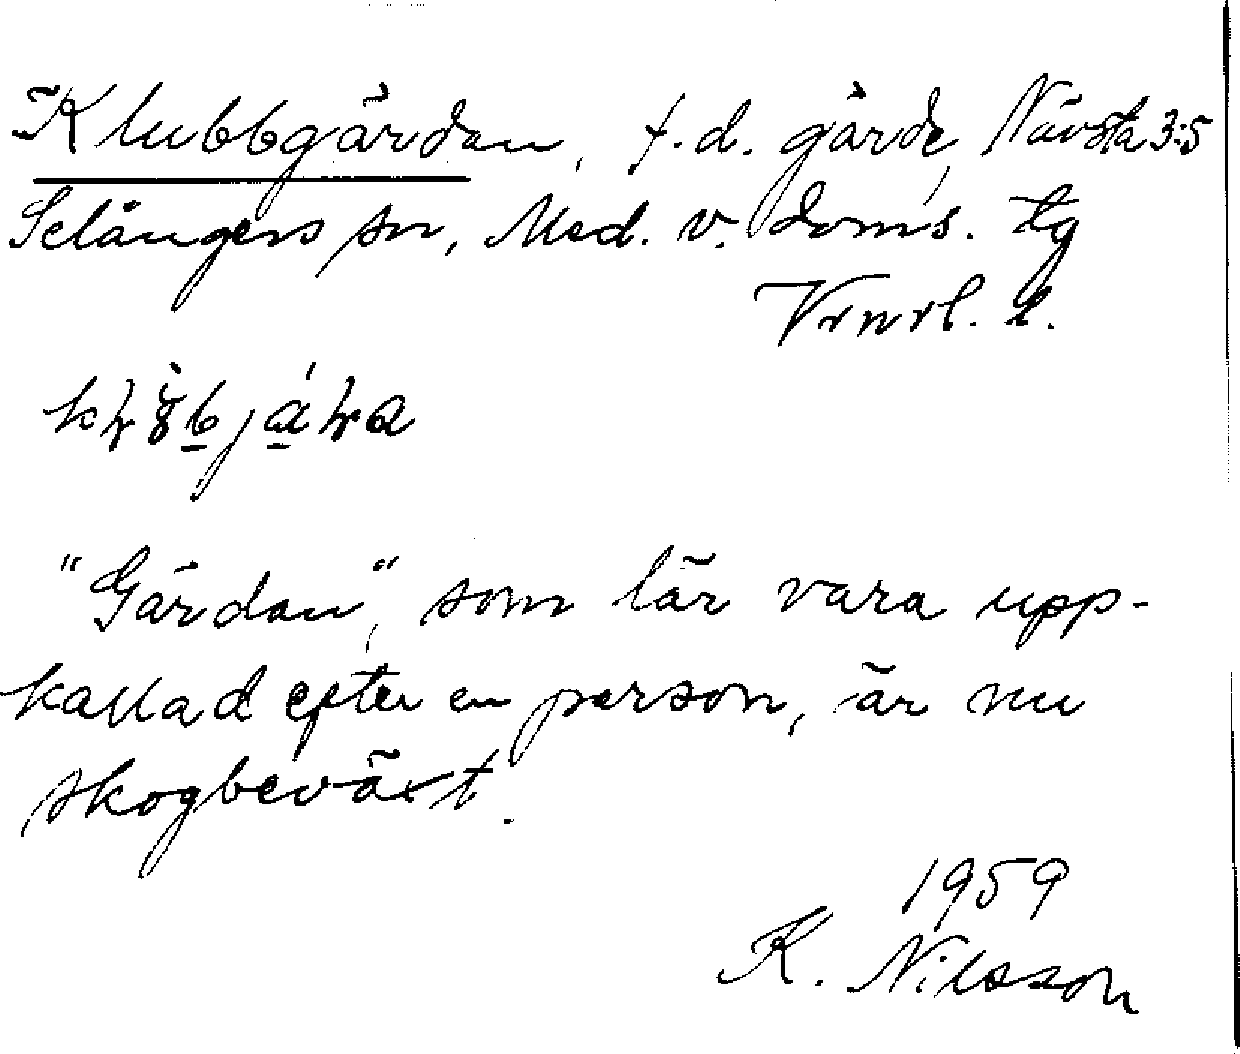 Klubbgärdan, f.d. gärde, Nävsta 3:5
Selångers sn, Med. v. doms. tg
Vrnrl. l.
"Gärdan", som lär vara upp-
kallad efter en person, är nu
skogbeväxt.
1959
K. Nilsson